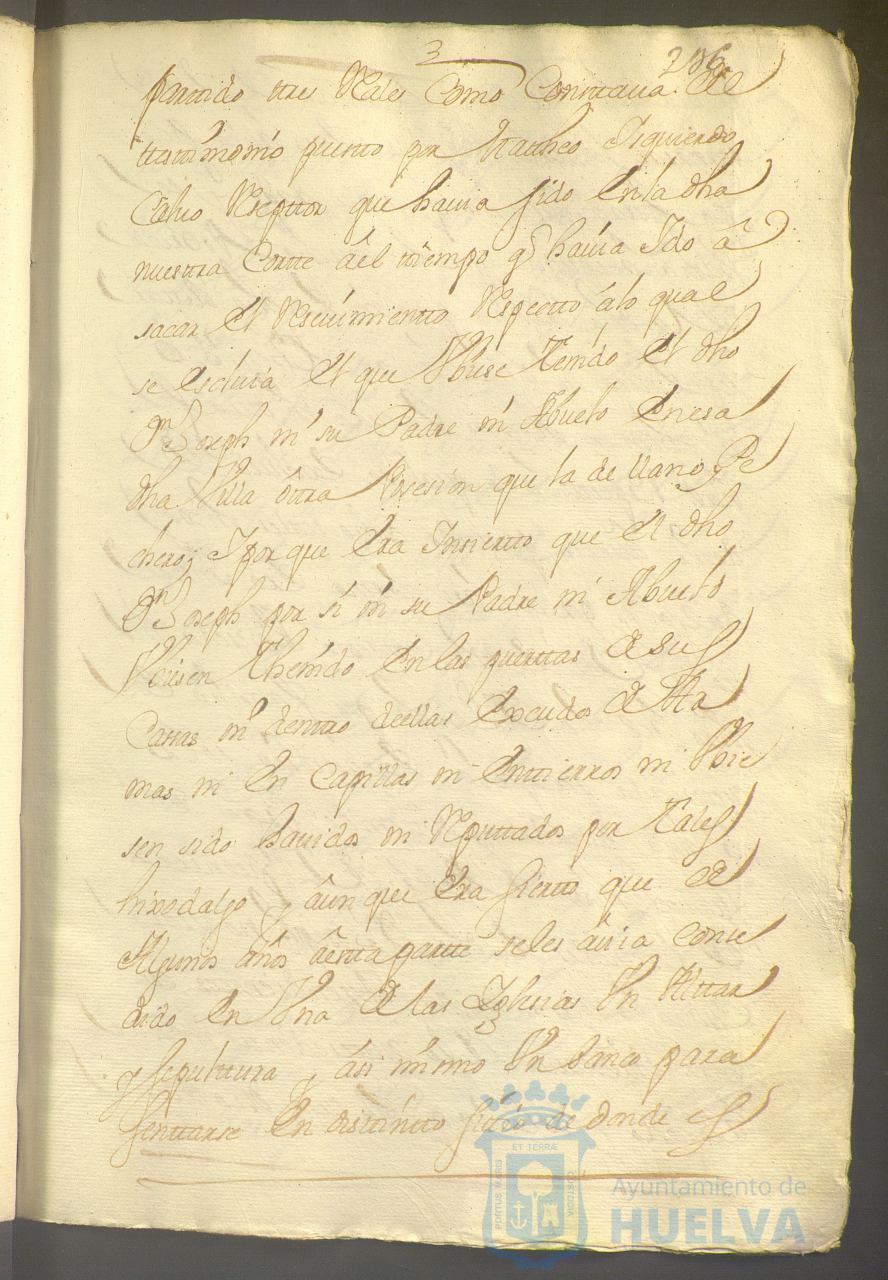 3
partido tres Rales Como Constaua del
ttestimonio puesto por Matheo Izquierdo
Calvo Rezepttor que hauia sido En la dha
nuestra Cortte a el tiempo q̃ hauia Ido a
sacar El Resciuimientto Respectto a lo qual
se escluia El que Vbiese Tenido El dho
Dn Joseph ni su Padre ni Abuelo en esa
dha Villa ôtra Posesion que la de llano, Pe
chero; I porque Era Insiertto que El dho
Dn Joseph por si ni su Padre ni Abuelo
Vbiesen Thenido En las puerttas de sus
Casas ni dentro de ellas Escudos de Ar
mas ni En Capillas ni Enttierros ni Vbie
sen sido hauidos ni Reputtados por Tales
hixodalgo y âunque Era sierto que de
Algunos años âesta partte se les âuia Conse
dido En Vna de las Iglesias Vn Alttar
y Sepulttura y âsi mismo Vn banco para
senttarse En distintto sitio de donde es
ET TERRÆ
PORTUS MARIS
CUSTODIA
Ayuntamiento de
HUELVA